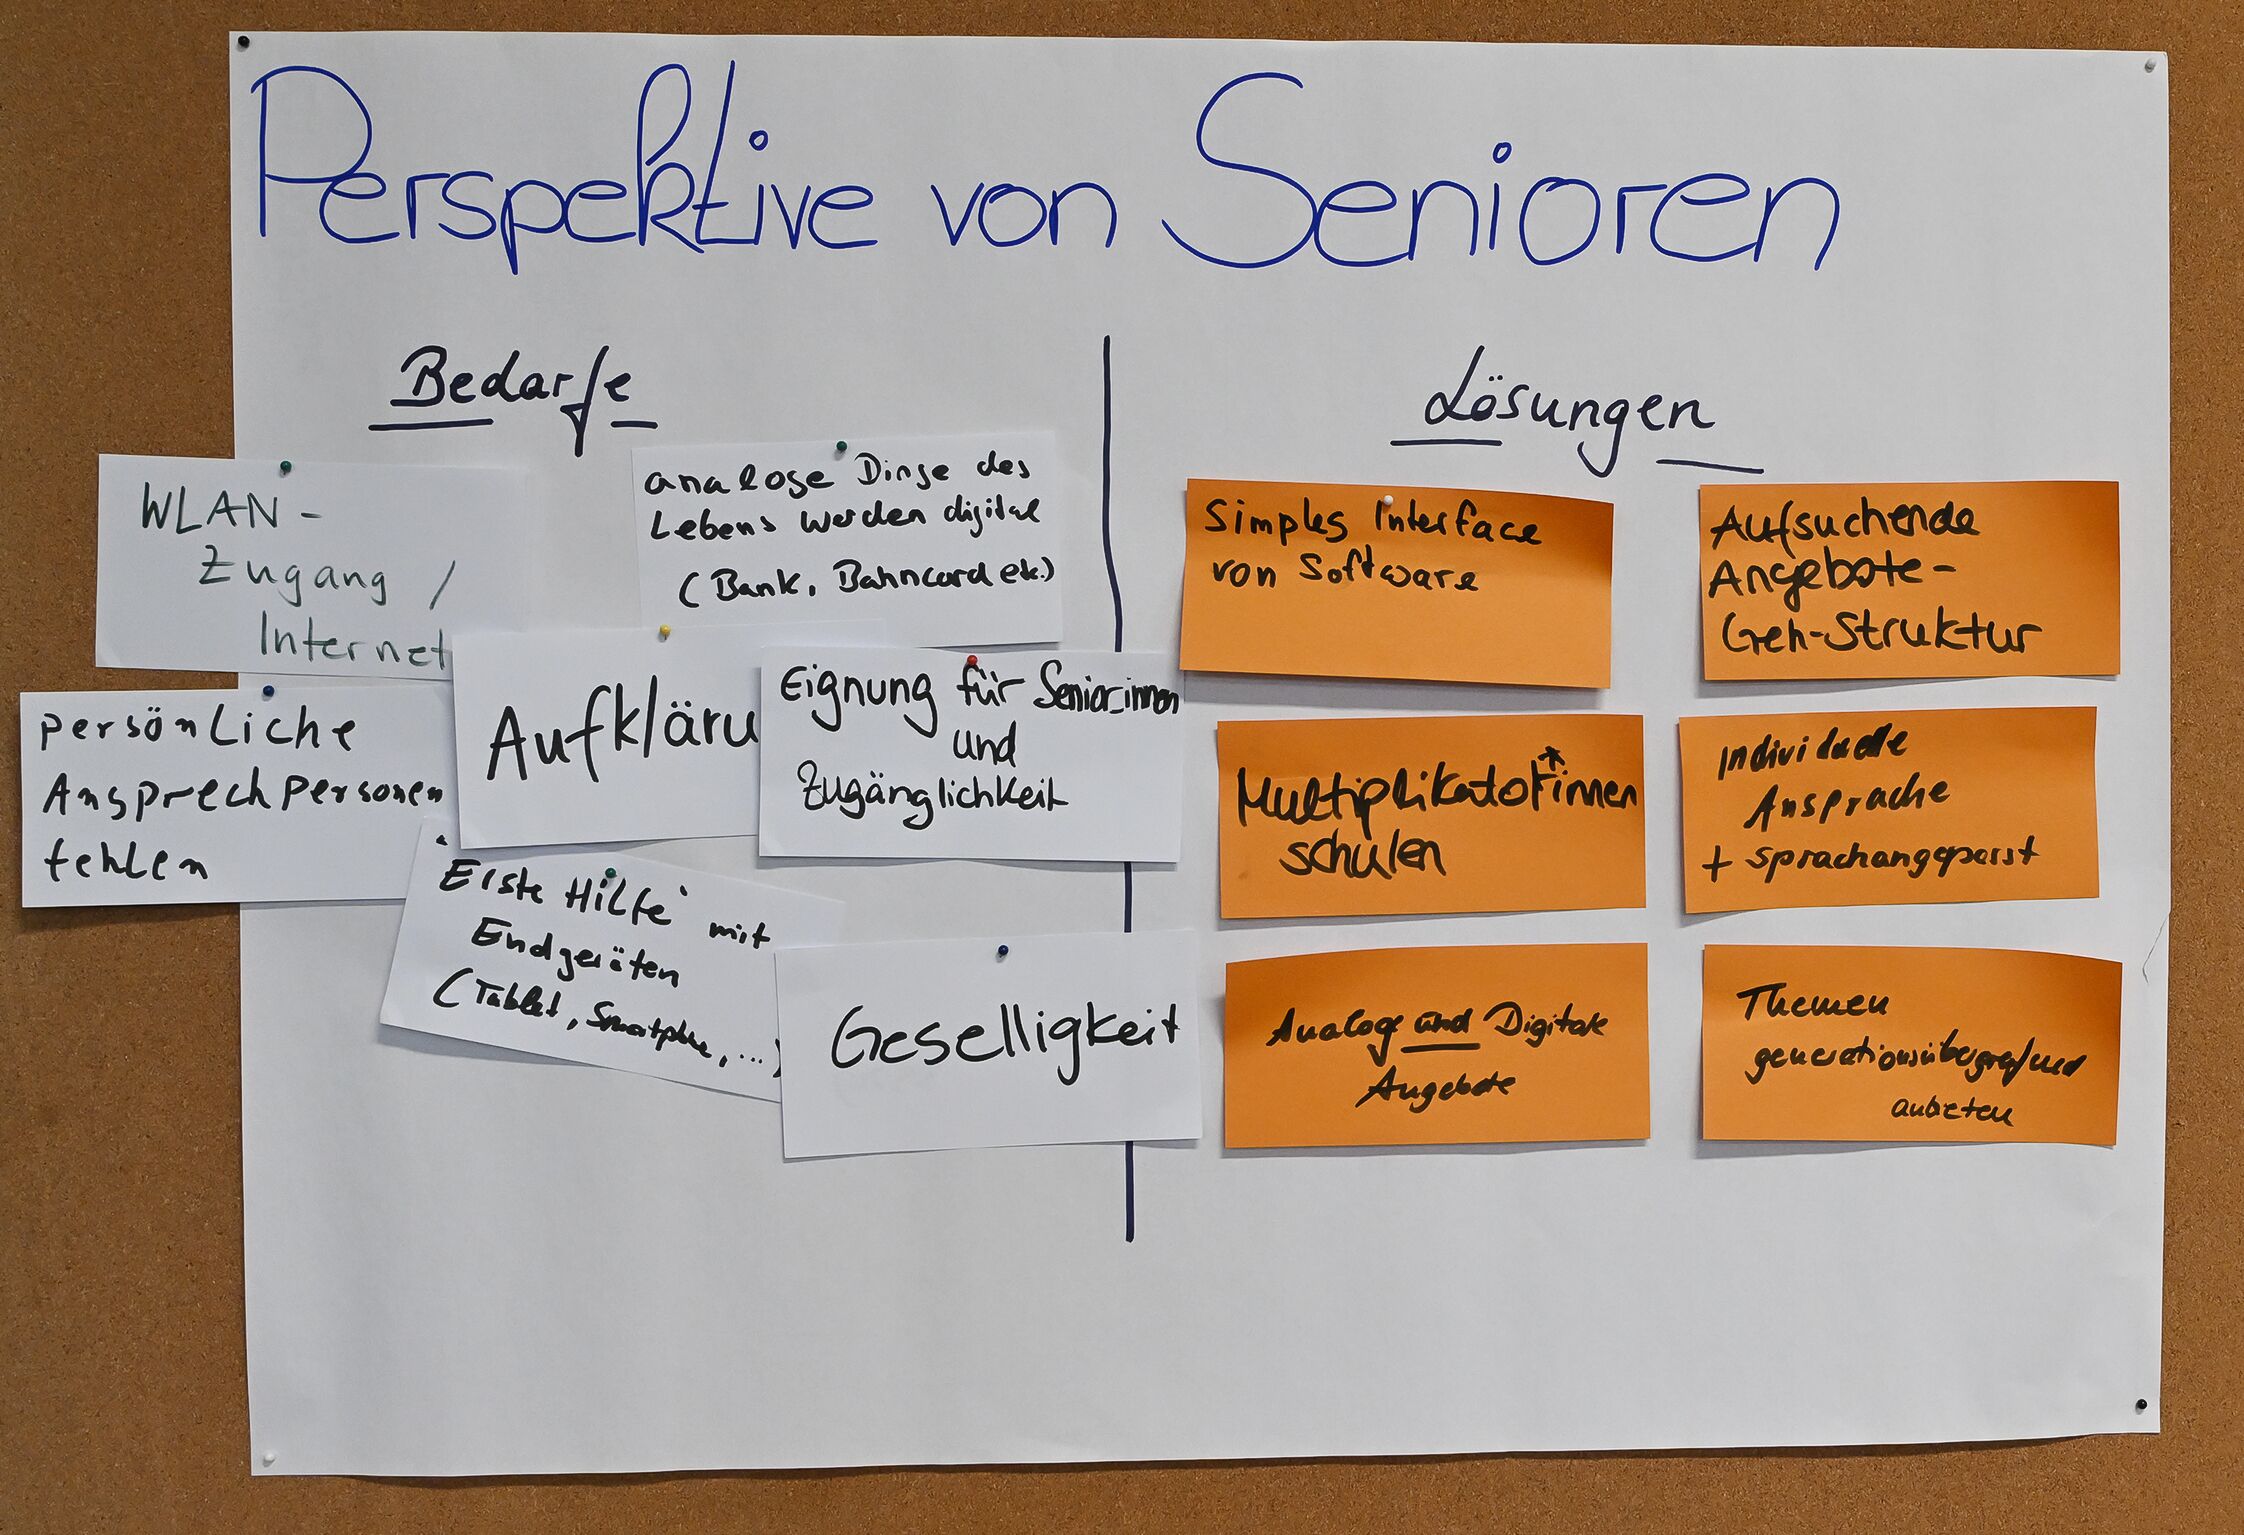 Perspektive von Senioren
Bedarfe
WLAN-
Zugang /
Internet
analoge Dinge des
Lebens werden digital
(Bank, Bahncard etc.)
persönliche
Ansprechpersonen
fehlen
Aufkläru
Eignung für Senior_innen
und
Zugänglichkeit
'Erste Hilfe' mit
Endgeräten
(Tablet, Smartphone, ...)
Geselligkeit
Lösungen
Simples Interface
von Software
Aufsuchende
Angebote-
Geh-Struktur
Multiplikator*innen
schulen
Individuelle
Ansprache
+ sprachangepasst
Analoge und Digitale
Angebote
Themen
generationsübergreifend
anbieten